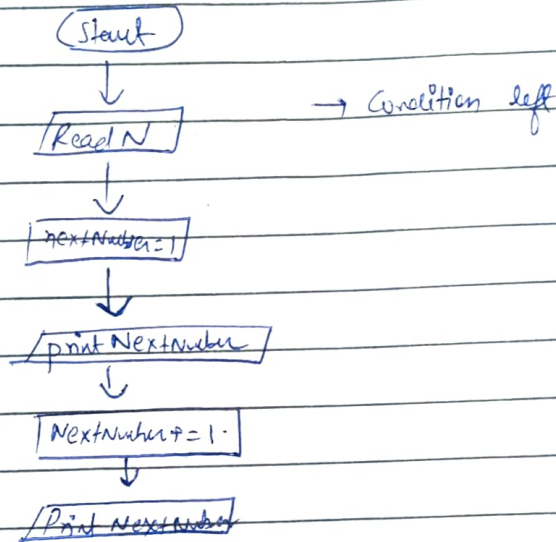 Start
→ Condition left
Read N
nextNumber=1
print NextNumber
NextNumber+=1.
Print NextNumber